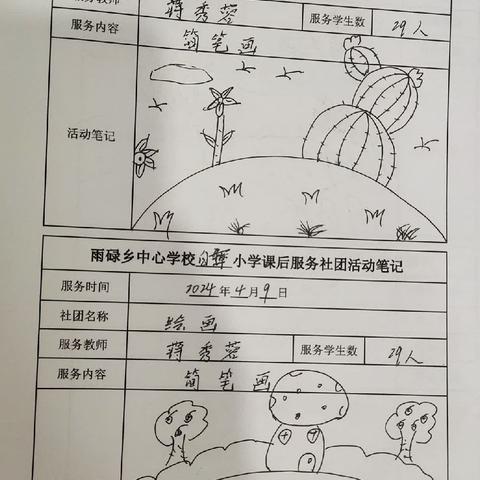 服务教师 蒋秀蓉 服务学生数 29人
服务内容 简笔画
活动笔记
雨碌乡中心学校 小学课后服务社团活动笔记
服务时间 2024年4月9日
社团名称 绘画
服务教师 蒋秀蓉 服务学生数 29人
服务内容 简笔画